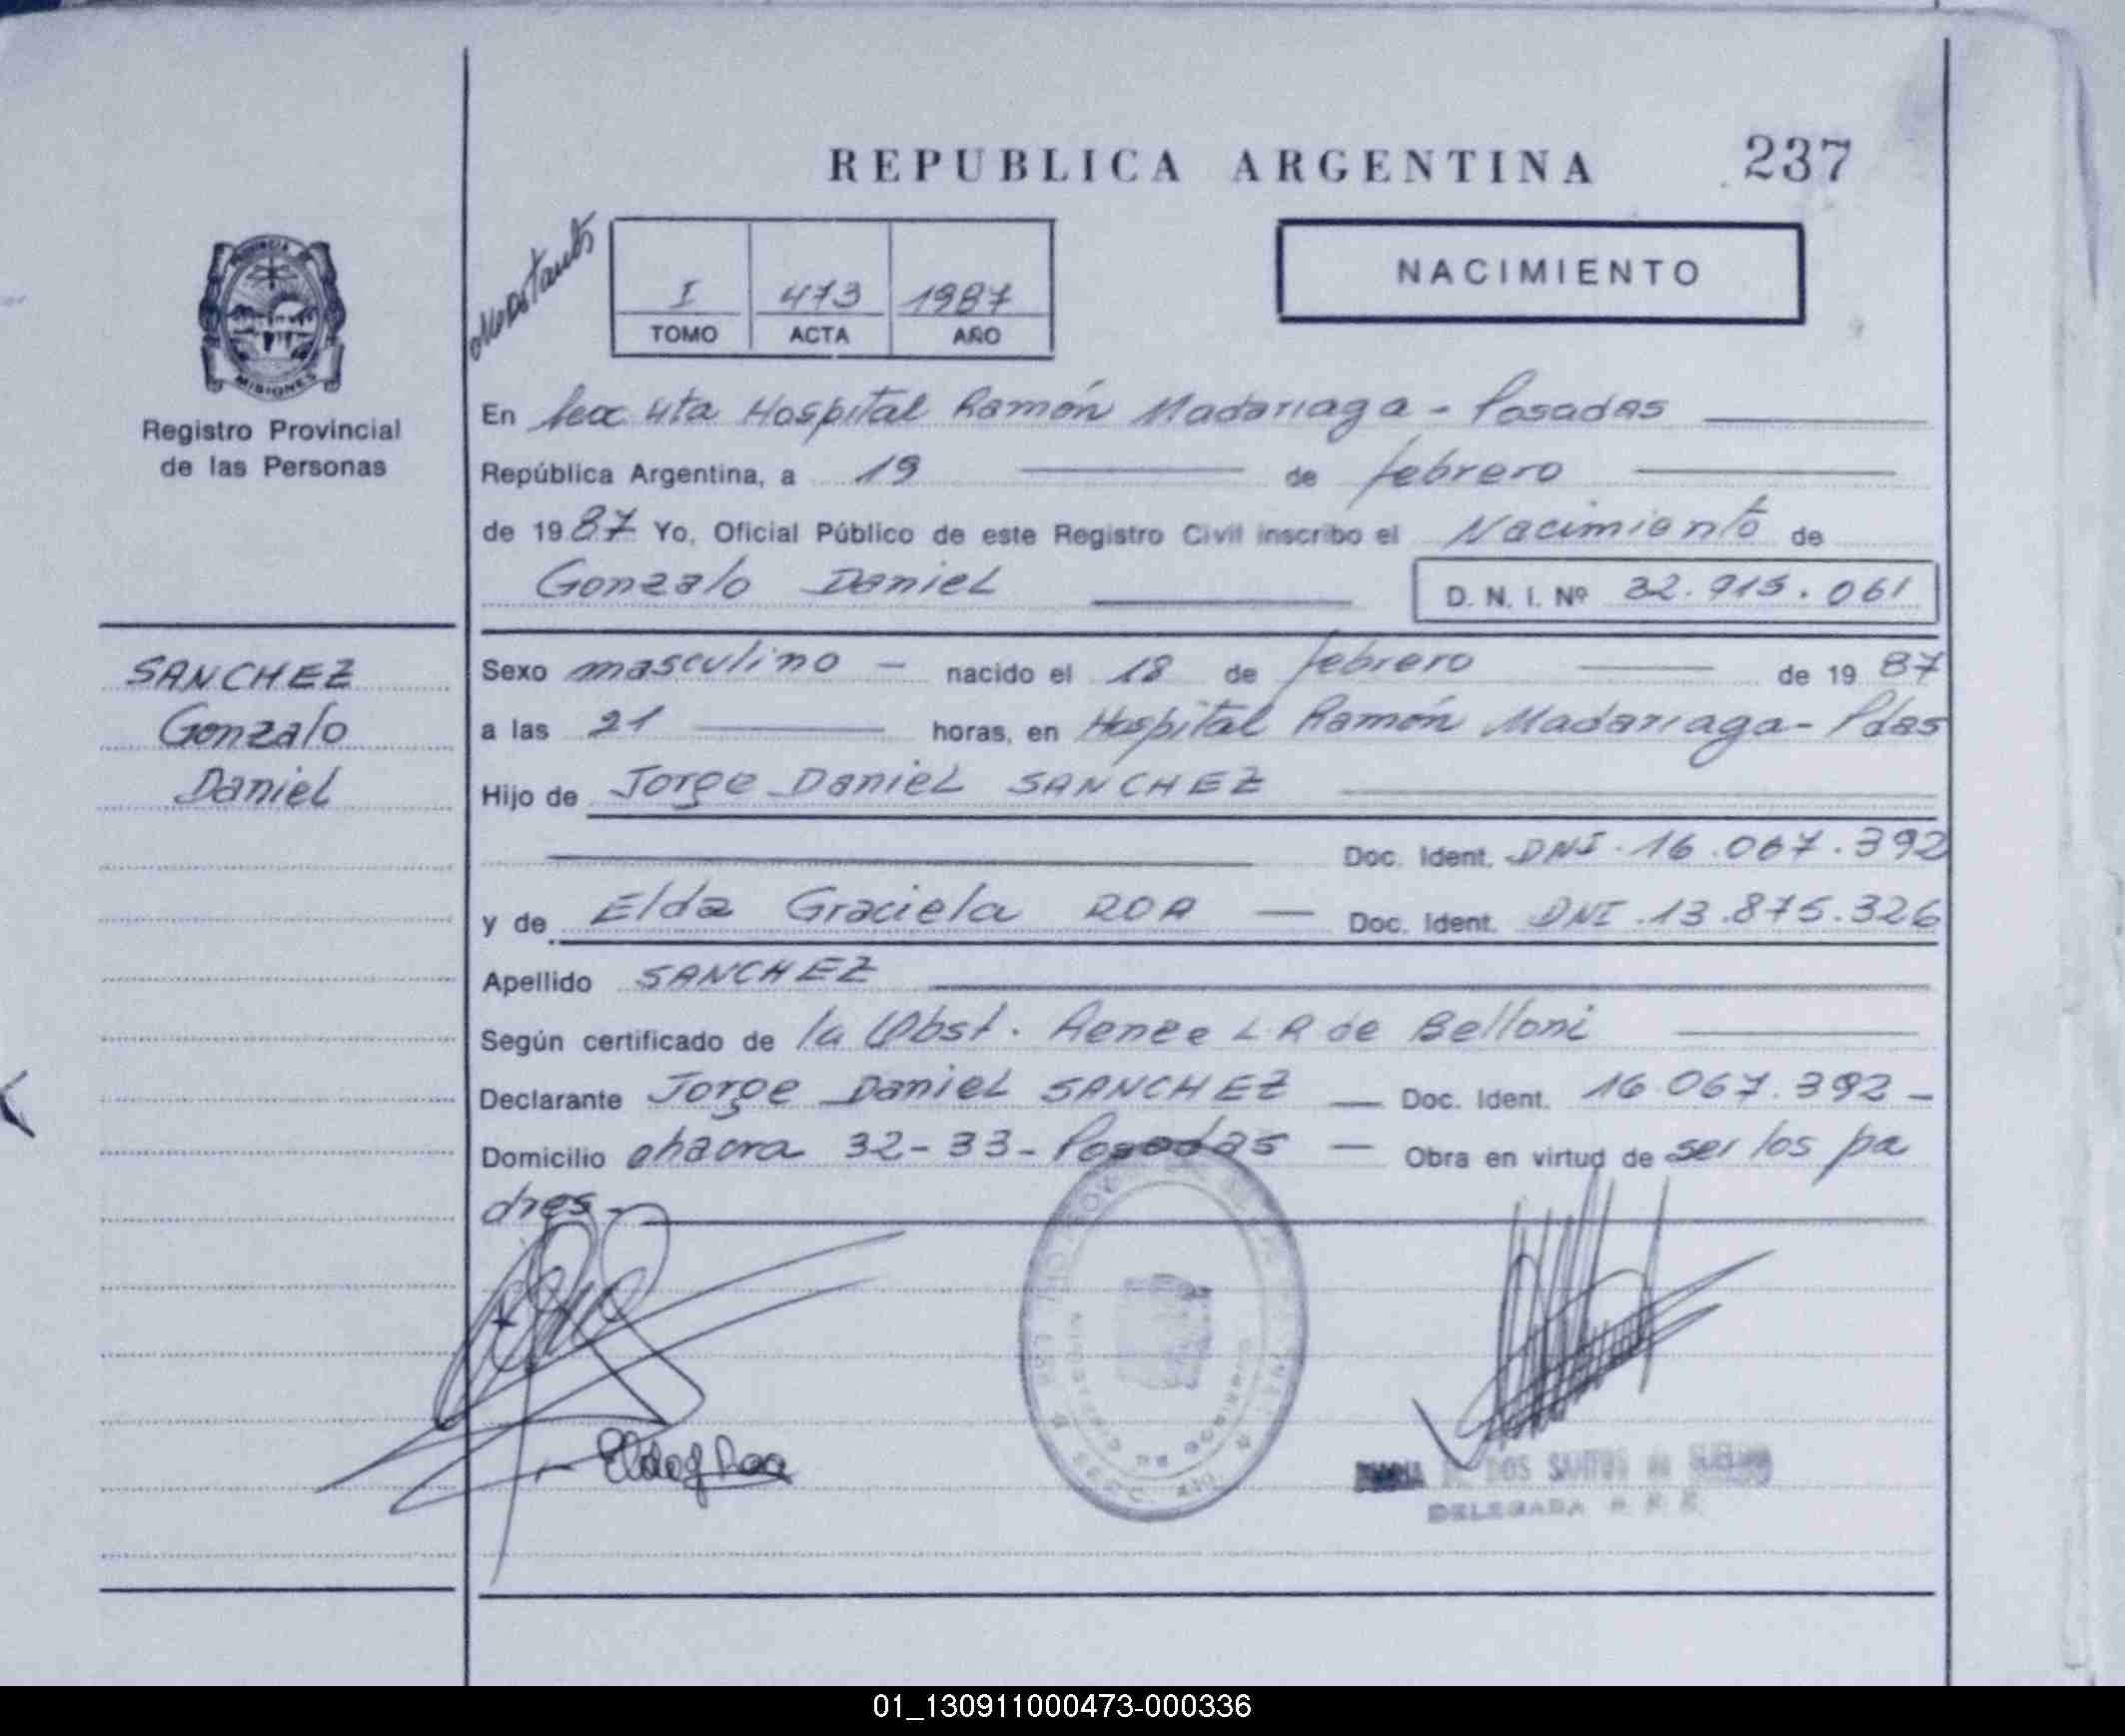 REPUBLICA ARGENTINA 237
PROVINCIA
MISIONES
Registro Provincial
de las Personas
I 473 1987
TOMO ACTA AÑO
NACIMIENTO
En Secc 4ta Hospital Ramón Madariaga - Posadas
República Argentina, a 19 de febrero
de 1987 Yo, Oficial Público de este Registro Civil inscribo el Nacimiento de
Gonzalo Daniel D. N. I. Nº 32.915.061
SANCHEZ
Gonzalo
Daniel
Sexo masculino — nacido el 18 de febrero de 1987
a las 21 horas, en Hospital Ramón Madariaga - Pdas
Hijo de Jorge Daniel SANCHEZ
Doc. Ident. DNI. 16.067.392
y de Elda Graciela ROA — Doc. Ident. DNI. 13.875.326
Apellido SANCHEZ
Según certificado de la Obst. Renee L R de Belloni
Declarante Jorge Daniel SANCHEZ — Doc. Ident. 16.067.392 -
Domicilio chacra 32-33- Posadas — Obra en virtud de ser los pa
dres -
Elda G Roa
MARIA DOS SANTOS de
DELEGADA
01_130911000473-000336